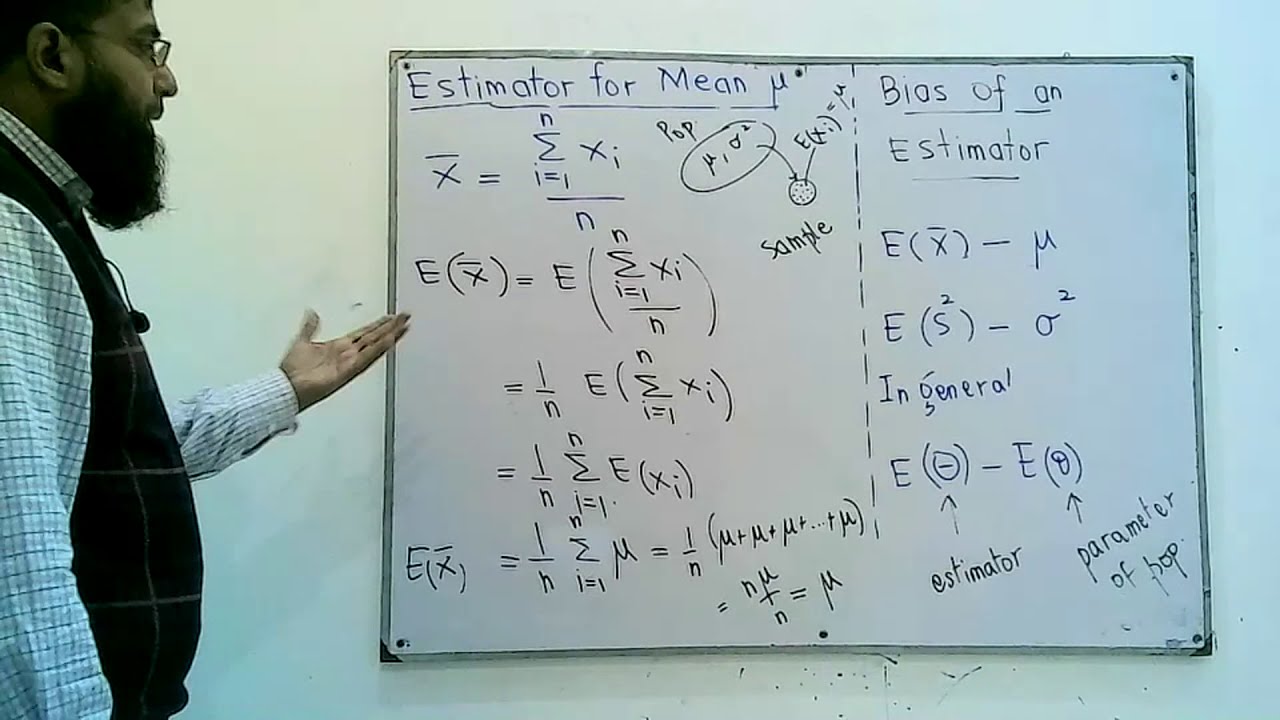 Estimator for Mean μ
x̄ = n Σ i=1 xi / n
Pop
μ, σ²
E(xi) = μ
Sample
E(x̄) = E( n Σ i=1 xi / n )
= 1/n E( n Σ i=1 xi )
= 1/n n Σ i=1 E(xi)
E(x̄) = 1/n n Σ i=1 μ = 1/n (μ+μ+μ+...+μ)
= nμ/n = μ
Bias of an
Estimator
E(x̄) – μ
E(S²) – σ²
In general
E(Θ) – E(θ)
↑ ↑
estimator
parameter
of pop.